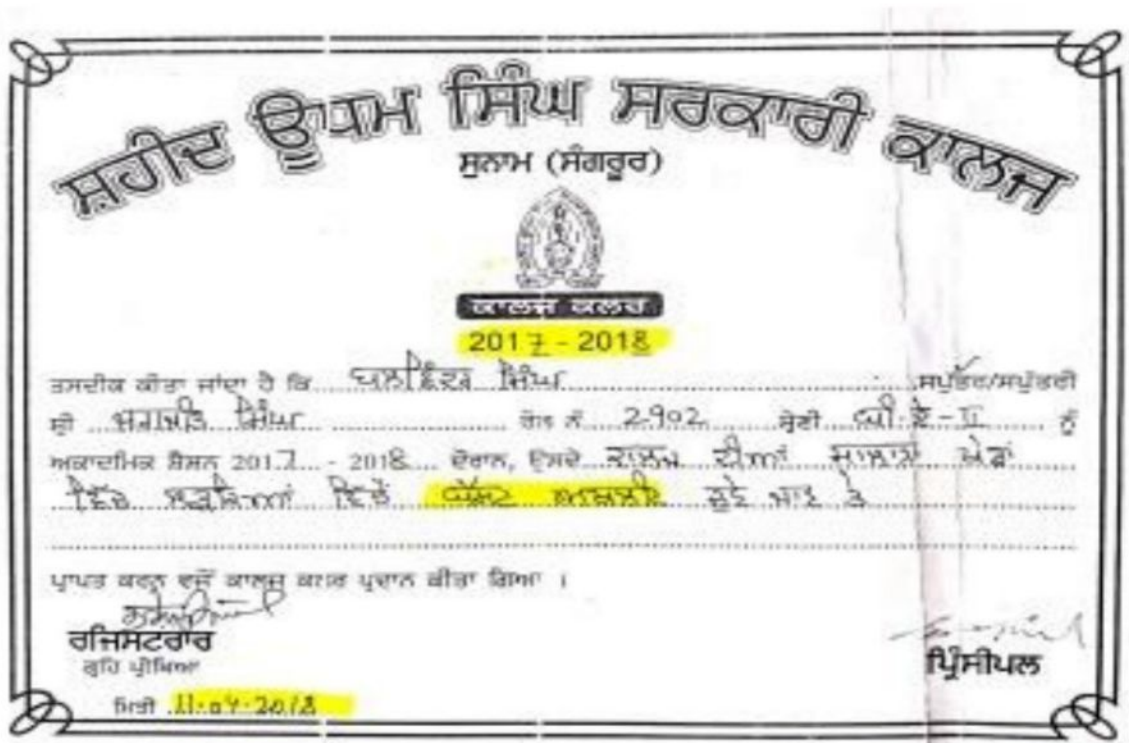 ਸ਼ਹੀਦ ਊਧਮ ਸਿੰਘ ਸਰਕਾਰੀ ਕਾਲਜ
ਸੁਨਾਮ (ਸੰਗਰੂਰ)
ਕਾਲਜ ਕਲਰ
2017 - 2018
ਤਸਦੀਕ ਕੀਤਾ ਜਾਂਦਾ ਹੈ ਕਿ ਸਿੰਘ ਸਪੁੱਤਰ/ਸਪੁੱਤਰੀ
ਸ੍ਰੀ ਸਿੰਘ ਰੋਲ ਨੰ 2902 ਸ਼੍ਰੇਣੀ ਬੀ.ਏ-II ਨੂੰ
ਅਕਾਦਮਿਕ ਸੈਸ਼ਨ 2017 - 2018 ਦੌਰਾਨ, ਉਸਦੇ ਕਾਲਜ ਦੀਆਂ ਸਾਲਾਨਾ ਖੇਡਾਂ
ਵਿੱਚ ਲੜਕਿਆਂ ਵਿੱਚੋਂ ਬੈਸਟ ਅਥਲੀਟ ਚੁਣੇ ਜਾਣ ਤੇ
ਪ੍ਰਾਪਤ ਕਰਨ ਵਜੋਂ ਕਾਲਜ ਕਲਰ ਪ੍ਰਦਾਨ ਕੀਤਾ ਗਿਆ ।
ਰਜਿਸਟਰਾਰ
ਗ੍ਰਹਿ ਪ੍ਰੀਖਿਆ
ਪ੍ਰਿੰਸੀਪਲ
ਮਿਤੀ 11.04.2018